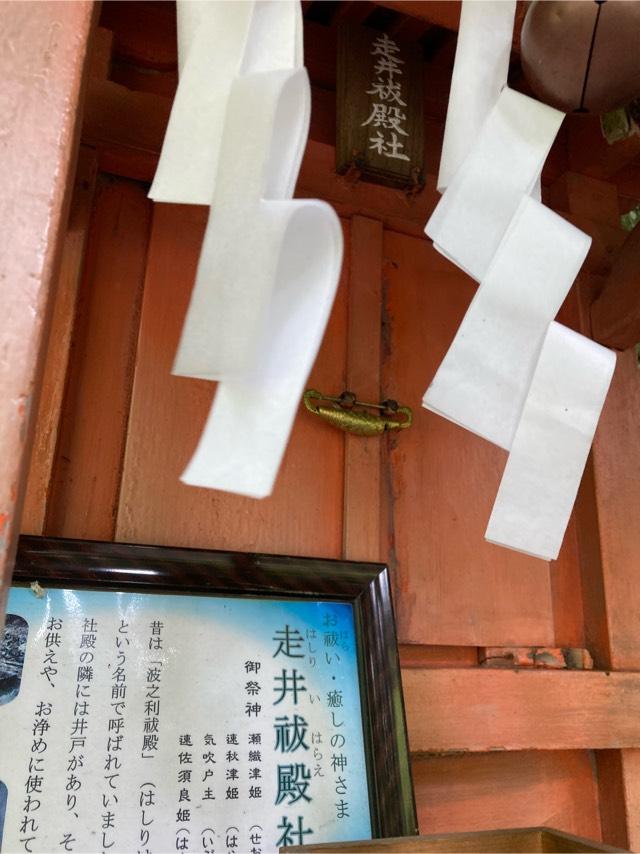 走井祓殿社
お祓い・癒しの神さま
はら
走井祓殿社
はしり い はらえ
御祭神 瀬織津姫 (せお
速秋津姫 (は
気吹戸主 (い
速佐須良姫 (は
昔は「波之利祓殿」(はしり
という名前で呼ばれていまし
社殿の隣には井戸があり、そ
お供えや、お浄めに使われて